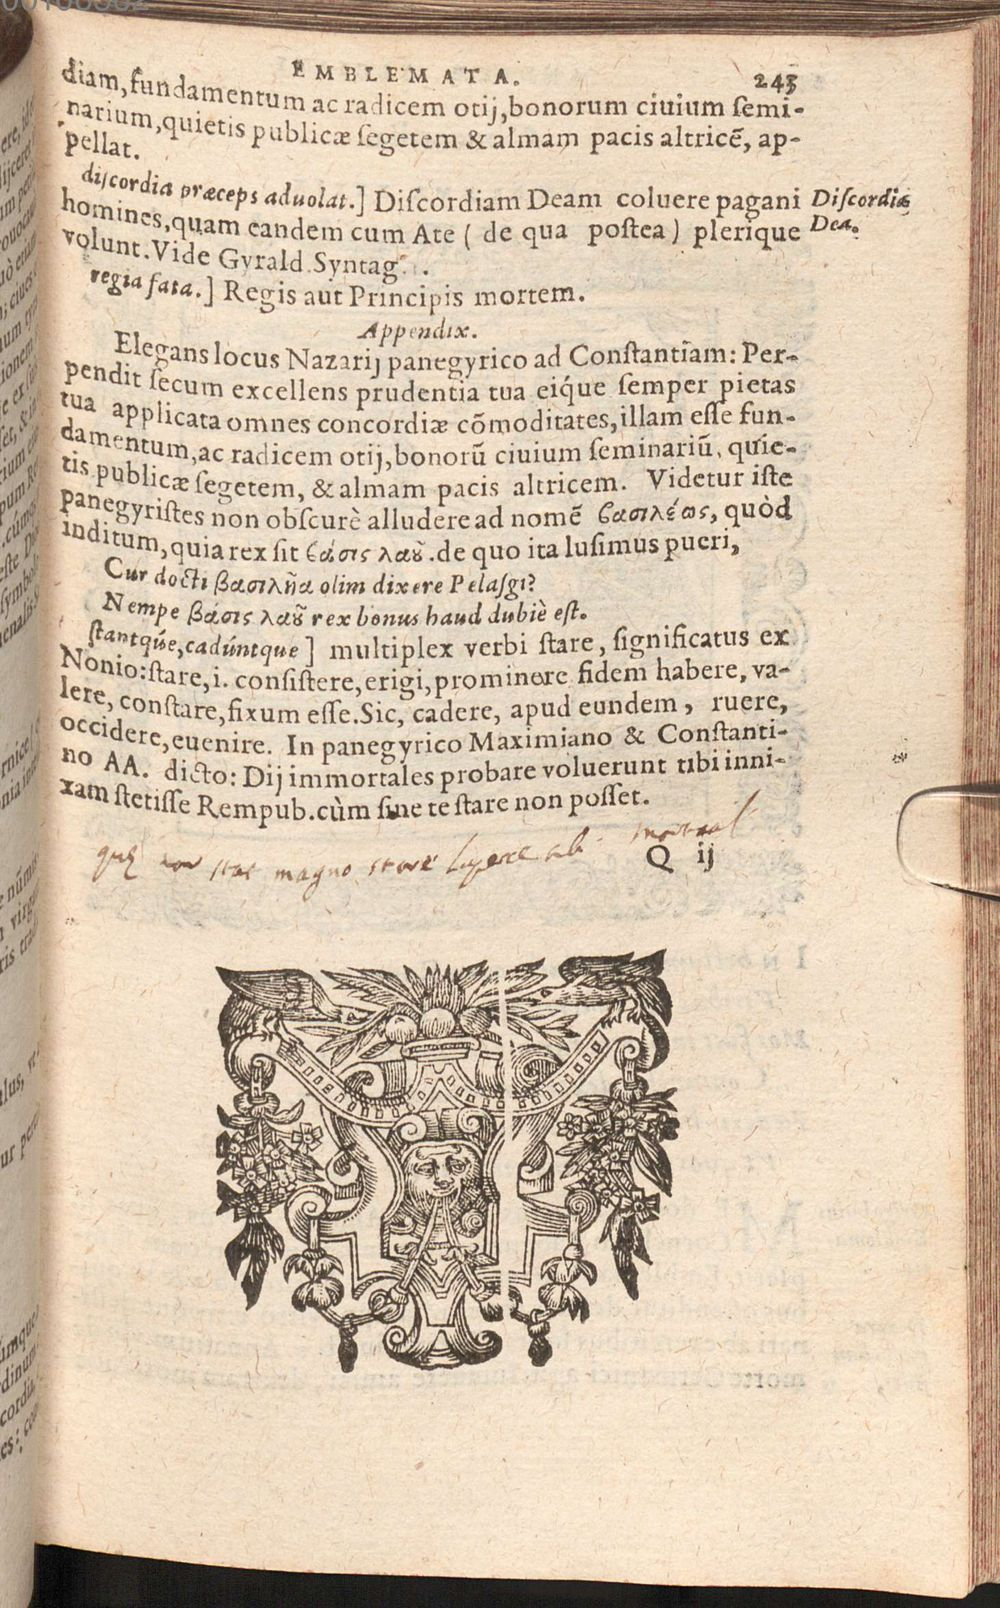 EMBLEMATA. 243
diam, fundamentum ac radicem otij, bonorum ciuium semi-
narium, quietis publicæ segetem & almam pacis altricẽ, ap-
pellat.
discordia præceps aduolat.] Discordiam Deam coluere pagani
homines, quam eandem cum Ate ( de qua postea ) plerique
volunt. Vide Gyrald. Syntag. .
Discordia
Dea.
regia fata.] Regis aut Principis mortem.
Appendix.
Elegans locus Nazarij panegyrico ad Constantiam: Per-
pendit secum excellens prudentia tua eiq́ue semper pietas
tua applicata omnes concordiæ cõmoditates, illam esse fun-
damentum, ac radicem otij, bonorũ ciuium seminariũ, quie-
tis publicæ segetem, & almam pacis altricem. Videtur iste
panegyristes non obscurè alludere ad nomẽ βασιλέως, quòd
inditum, quia rex sit βάσις λαȣ͂. de quo ita lusimus pueri,
Cur docti βασιλῆα olim dixere Pelasgi?
Nempe βάσις λαȣ͂ rex bonus haud dubiè est.
stantq́ue, cadúntque ] multiplex verbi stare, significatus ex
Nonio: stare, i. consistere, erigi, prominere fidem habere, va-
lere, constare, fixum esse. Sic, cadere, apud eundem, ruere,
occidere, euenire. In panegyrico Maximiano & Constanti-
no AA. dicto: Dij immortales probare voluerunt tibi inni-
xam stetisse Rempub. cùm sine te stare non posset.
non stat magno stare
Q ij